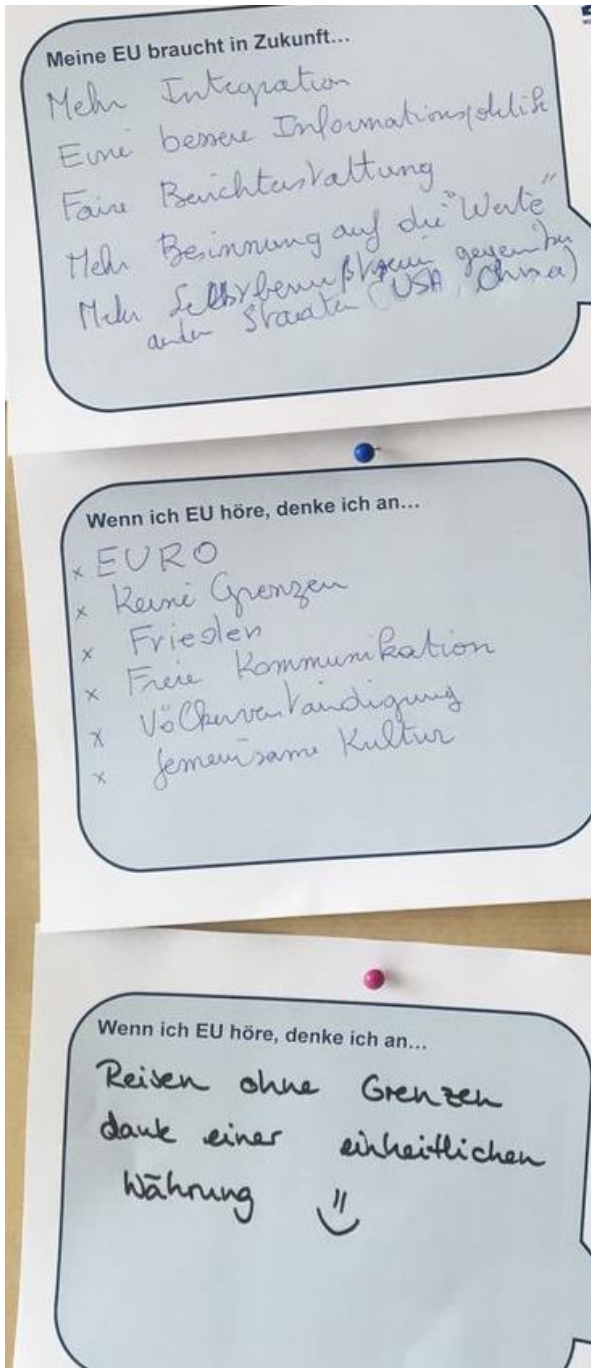 Meine EU braucht in Zukunft...
Mehr Integration
Eine bessere Informationspolitik
Faire Berichterstattung
Mehr Besinnung auf die "Werte"
Mehr Selbstbewußtsein gegenüber
andern Staaten (USA, China)
Wenn ich EU höre, denke ich an...
x EURO
x Keine Grenzen
x Frieden
x Freie Kommunikation
x Völkerverständigung
x Gemeinsame Kultur
Wenn ich EU höre, denke ich an...
Reisen ohne Grenzen
dank einer einheitlichen
Währung